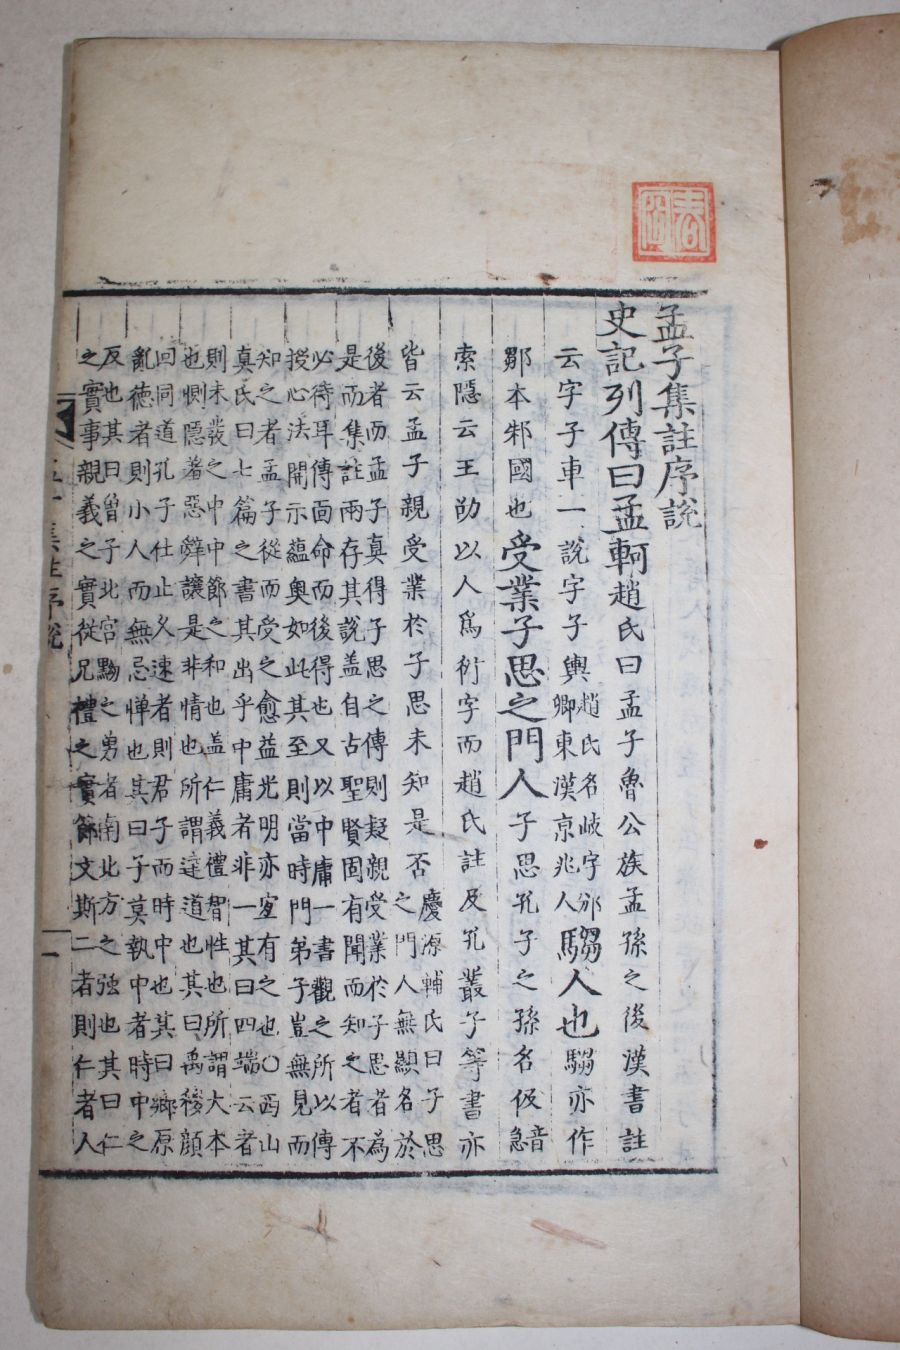 孟子集註序說
史記列傳曰孟軻趙氏曰孟子魯公族孟孫之後漢書註
云字子車一說字子輿趙氏名岐字邠
卿東漢京兆人騶人也騶亦作
鄒本邾國也受業子思之門人子思孔子之孫名伋音急
索隱云王劭以人爲衍字而趙氏註及孔叢子等書亦
皆云孟子親受業於子思未知是否慶源輔氏曰子思
之門人無顯名於
後者而孟子真得子思之傳則疑親受業於子思者爲
是而集註兩存其說盖自古聖賢固有聞而知之者不
必待耳傳面命而後得也又以中庸一書觀之所以傳
授心法開示蘊奧如此其至則當時門弟子豈無見而
知之者孟子從而受之愈益光明亦宜有之也○西山
真氏曰七篇之書其出乎中庸者非一其曰四端云者
則未發之中中節之和也盖仁義禮智性也所謂大本
也惻隱羞惡辭讓是非情也所謂達道也其曰禹稷顔
回同道孔子仕止久速者則君子而時中也其曰鄉原
亂德者則小人而無忌憚也其曰子莫執中者時中之
反也其曰曾子北宮黝之勇者南北方之強也其曰仁
之實事親義之實從兄禮之實節文斯二者則仁者人
集註序說 一